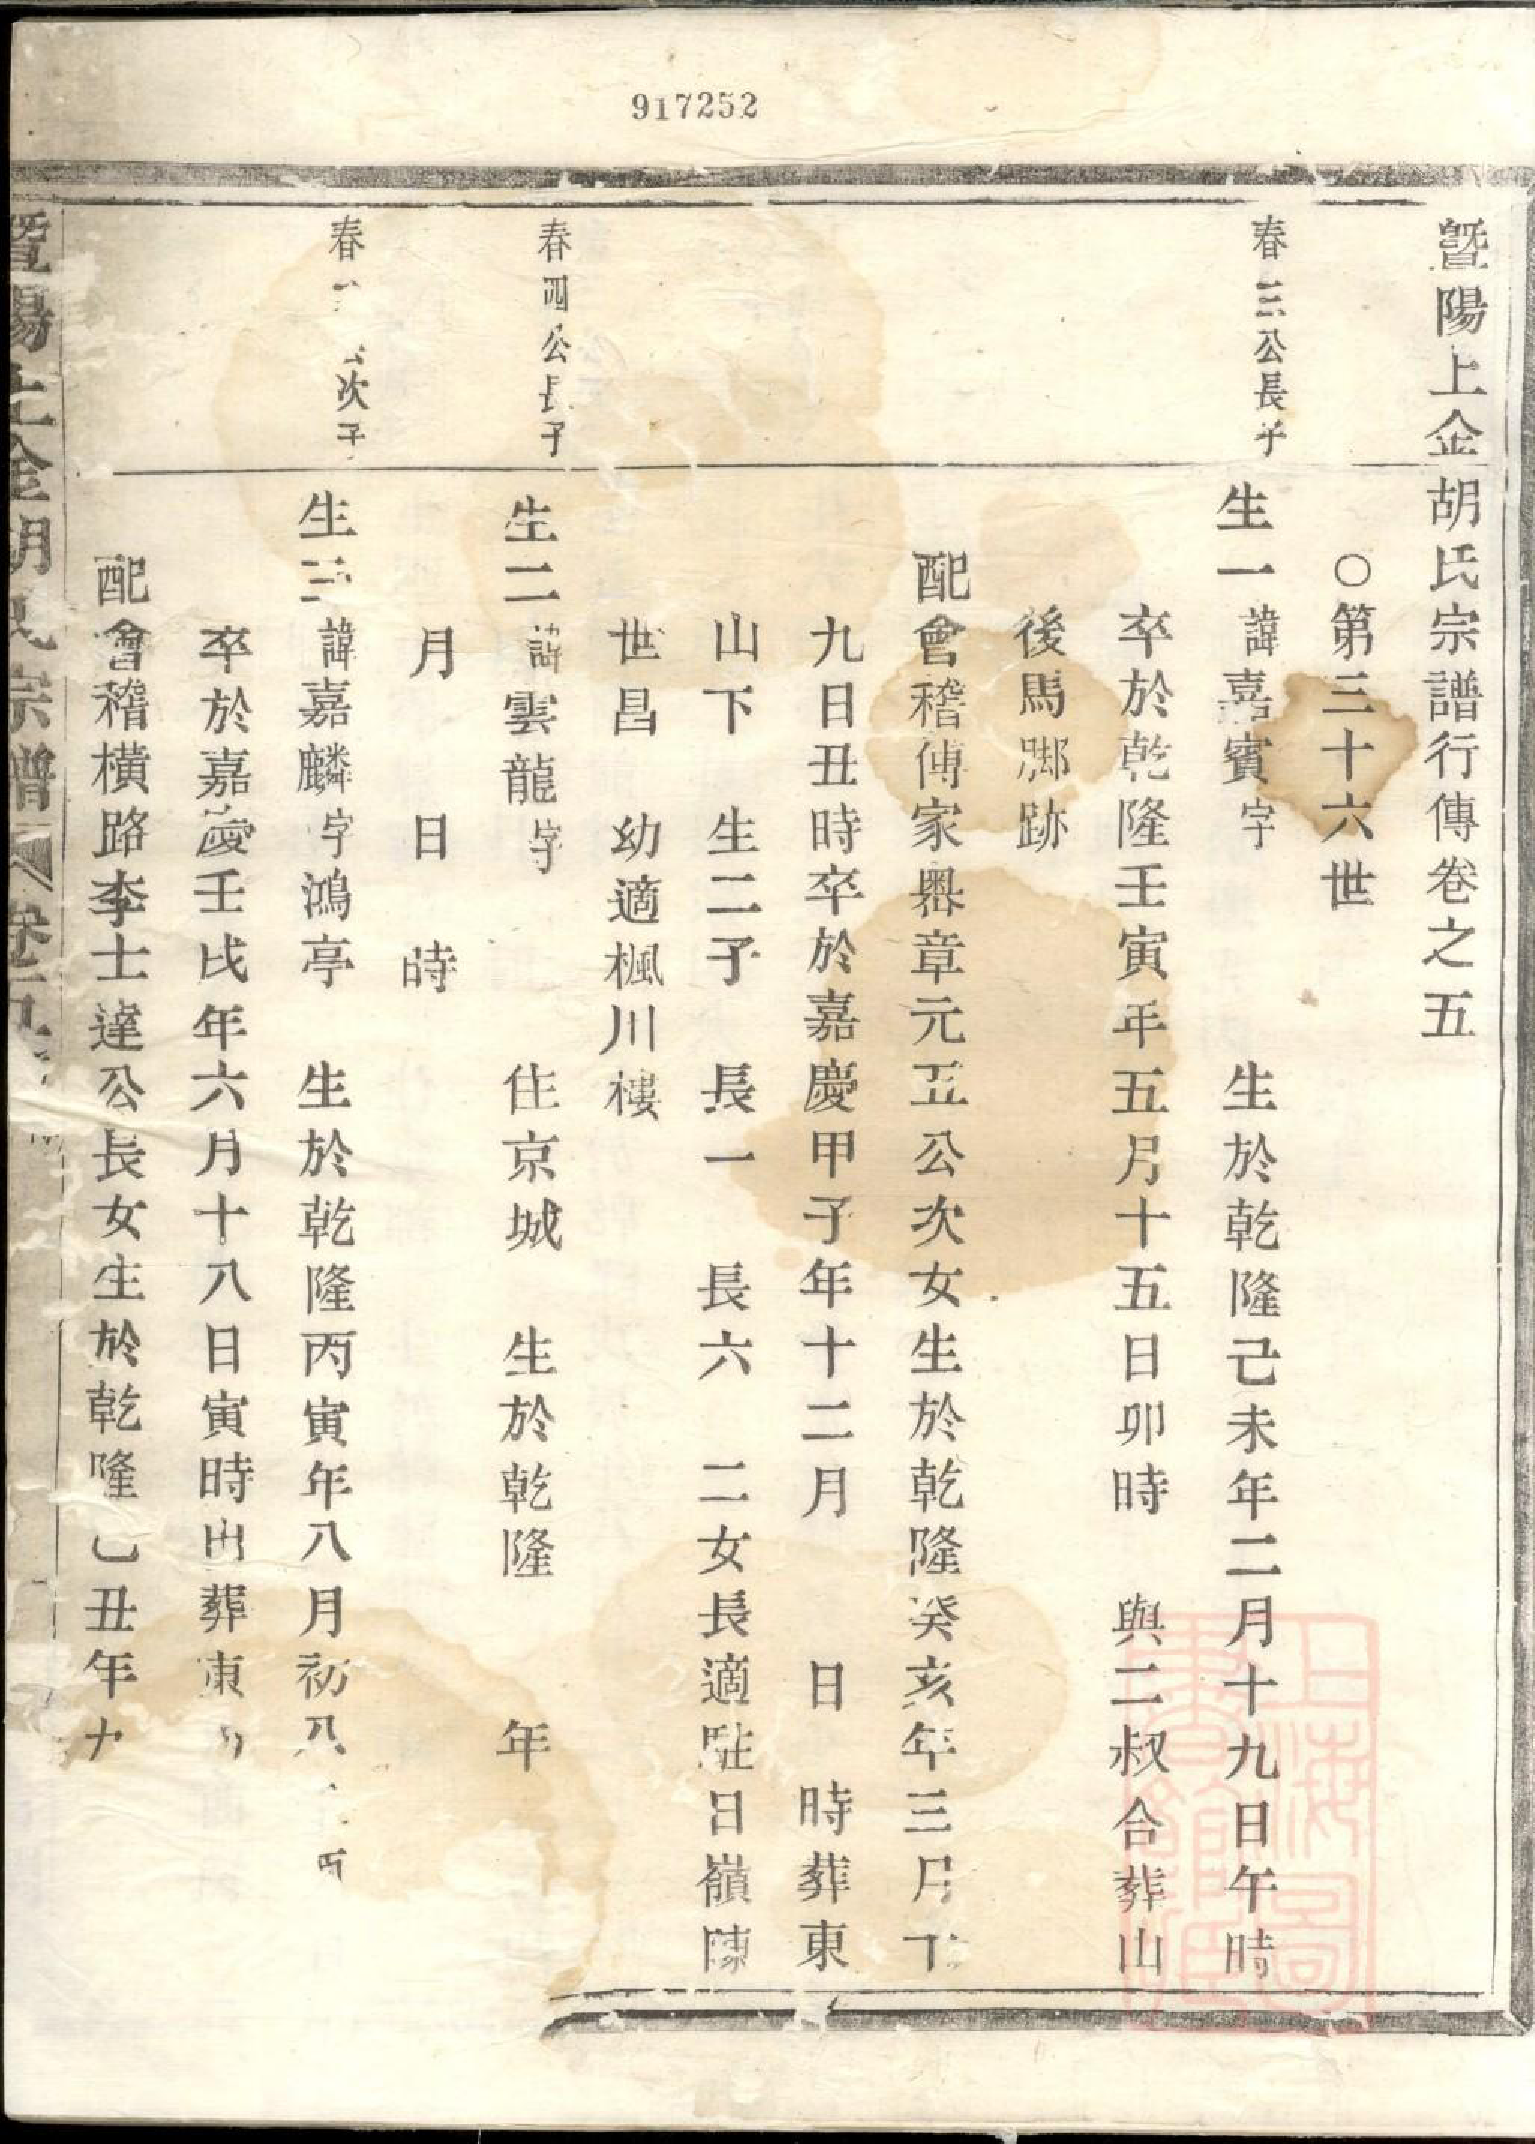 917252
暨陽上金胡氏宗譜行傳卷之五
○第三十六世
春三公長子
生一諱嘉賓字 生於乾隆己未年二月十九日午時
卒於乾隆壬寅年五月十五日卯時 與二叔合葬山
後馬腳跡
配會稽傅家嶴章元五公次女生於乾隆癸亥年三月十
九日丑時卒於嘉慶甲子年十二月 日 時葬東
山下 生二子 長一 長六 二女長適駐日嶺陳
世昌 幼適楓川樓
春四公長子
生二諱雲龍字 住京城 生於乾隆 年
月 日 時
春 公次子
生三諱嘉麟字鴻亭 生於乾隆丙寅年八月初八
卒於嘉慶壬戌年六月十八日寅時出葬東
配會稽橫路李士達公長女生於乾隆乙丑年九
暨陽上金胡氏宗譜 卷五
上海圖書館藏